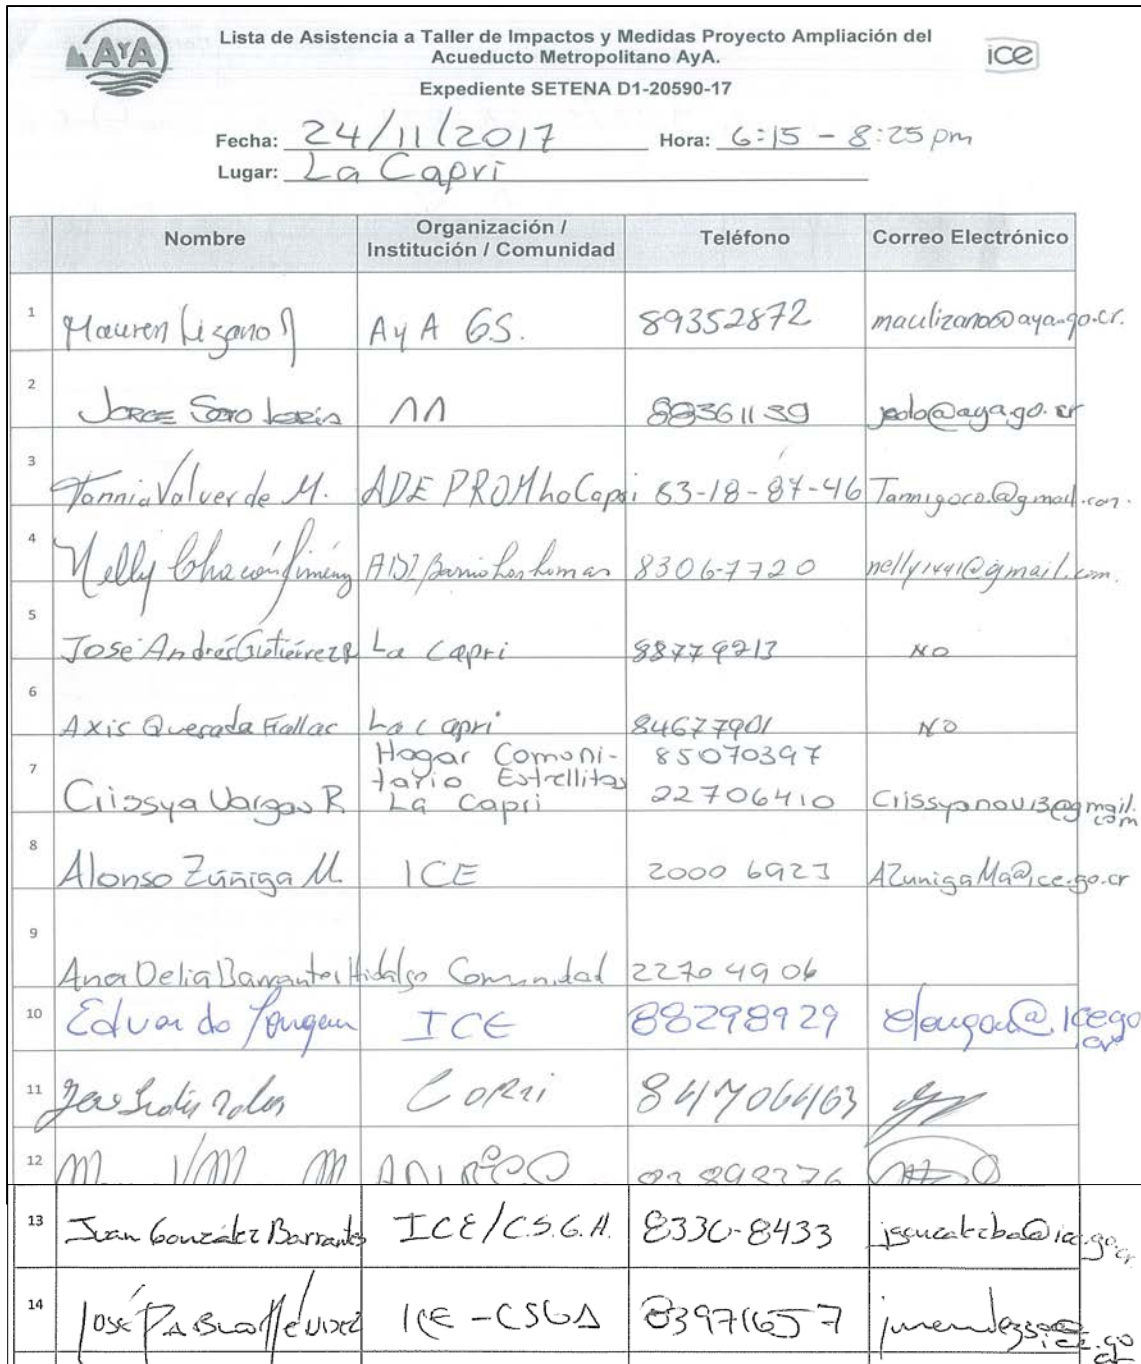 AYA
Lista de Asistencia a Taller de Impactos y Medidas Proyecto Ampliación del
Acueducto Metropolitano AyA.
ice
Expediente SETENA D1-20590-17
Fecha: 24/11/2017 Hora: 6:15 - 8:25 pm
Lugar: La Capri
Nombre Organización / Institución / Comunidad Teléfono Correo Electrónico
1 Mauren Lizano A y A GS. 89352872 maulizano@aya.go.cr.
2 Jorge Soto 11 88361139 @aya.go.cr
3 Tannia Valverde M. ADE PROM La Capri 83-18-87-46 Tannigoca.@gmail.com.
4 Nelly Chacón Jiménez ADI Barrio Los Lomas 8306-7720 nelly1441@gmail.com.
5 José Andrés Gutiérrez R La Capri 88779213 NO
6 Axis Quesada Fallac La Capri 84677901 NO
7 Crissya Vargas R Hogar Comoni-
tario Estrellitas
La Capri 85070397
22706410 Crissyanov13@gmail.
com
8 Alonso Zúñiga M. ICE 2000 6923 AZunigaMa@ice.go.cr
9 Ana Delia Barrantes Hidalgo Comunidad 22704906
10 Eduardo ICE 88298929 @icego
cr
11
12
13 Juan González Barrantes ICE/C.S.G.A. 8330-8433 jgonzalezba@ice.go.cr
14 José Pablo Méndez ICE - CSGA 83971657